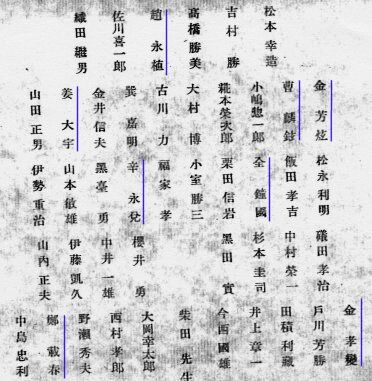 松本幸造
吉村勝
高橋勝美
趙永植
佐川喜一郎
織田継男
金芳炫
曹麟
小嶋惣一郎
糀本榮次郎
大村博
古川力
巽嘉明
金井信夫
姜大宇
山田正男
松永利明
飯田孝吉
全鐘國
栗田信岩
小室勝三
福家孝
辛永兌
黒臺勇
山本敏雄
伊勢重治
礒田孝治
中村榮一
杉本圭司
黒田實
櫻井勇
中井一雄
伊藤凱久
山内正夫
金孝變
戸川芳勝
田積利藏
井上章一
今西國雄
柴田先生
大岡幸太郎
西村孝郎
野瀬秀夫
鄭載春
中島忠利